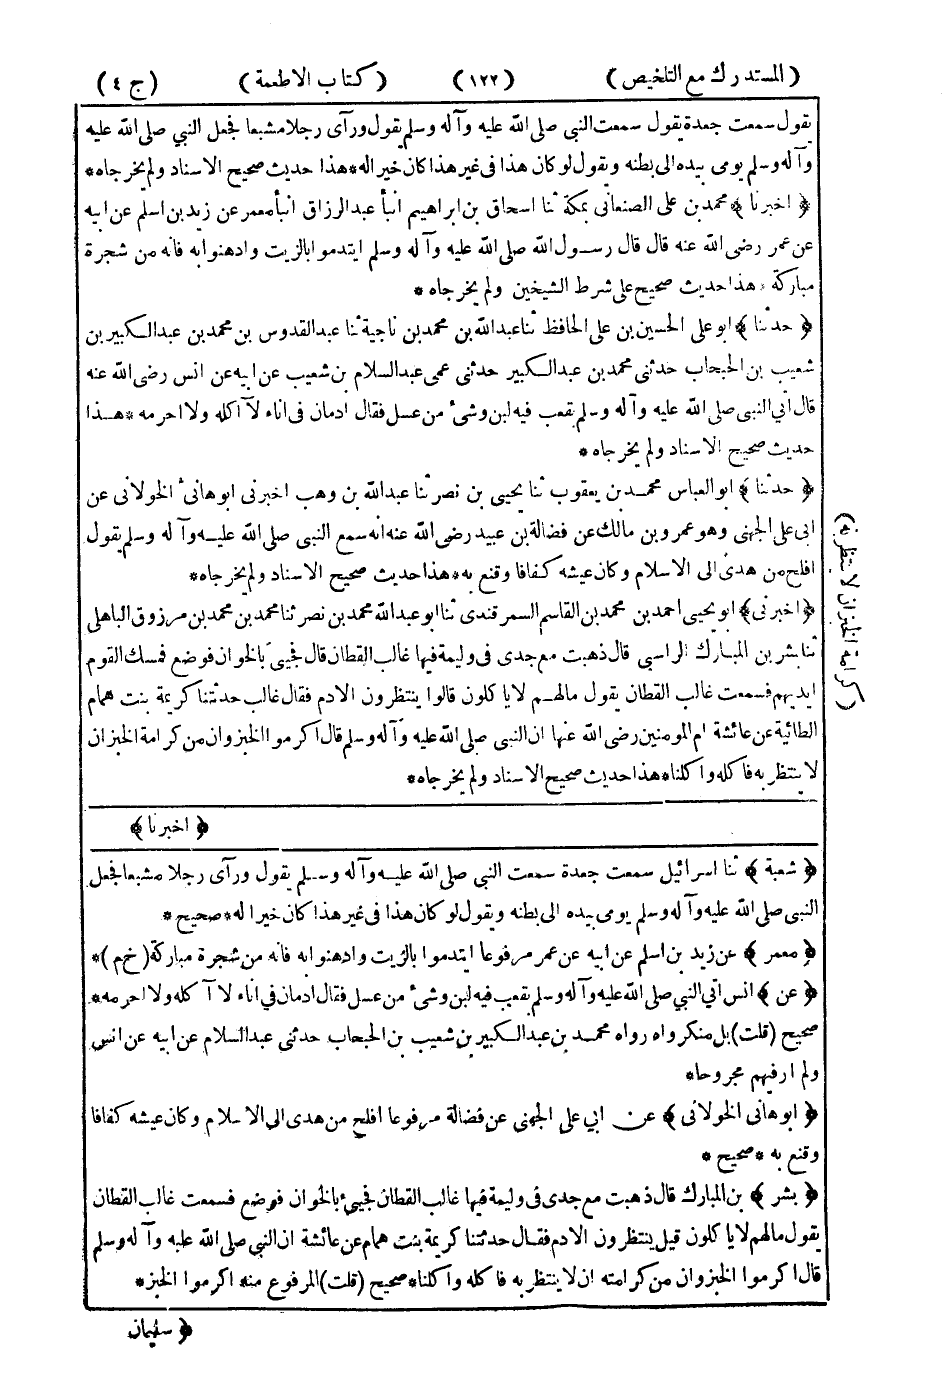 (المستدرك مع التلخيص) (١٢٢) (كتاب الاطعمة) (ج ٤)
يقول سمعت جعدة يقول سمعت النبي صلى الله عليه وآله وسلم يقول ورآى رجلا مشبعا فجعل النبي صلى الله عليه
وآله وسلم يومى بيده الى بطنه ويقول لو كان هذا فى غير هذا كان خير اله * هذا حديث صحيح الاسناد ولم يخرجاه *
﴿ اخبرنا ﴾ محمد بن على الصنعانى بمكة ثنا اسحاق بن ابراهيم انبأ عبد الرزاق انبأ معمر عن زيد بن اسلم عن ابيه
عن عمر رضى الله عنه قال قال رسول الله صلى الله عليه وآله وسلم ايتدموا بالزيت وادهنوا به فانه من شجرة
مباركة * هذا حديث صحيح على شرط الشيخين ولم يخرجاه *
﴿ حدثنا ﴾ ابو على الحسين بن على الحافظ ثنا عبد الله بن محمد بن ناجية ثنا عبد القدوس بن محمد بن عبد الكبير بن
شعيب بن الحبحاب حدثنى محمد بن عبد الكبير حدثنى عمى عبد السلام بن شعيب عن ابيه عن انس رضى الله عنه
قال اتي النبى صلى الله عليه وآله وسلم بقعب فيه لبن وشىء من عسل فقال ادمان فى اناء لا آكله ولا احرمه * هذا
حديث صحيح الاسناد ولم يخرجاه *
﴿ حدثنا ﴾ ابو العباس محمد بن يعقوب ثنا يحيى بن نصر ثنا عبد الله بن وهب اخبرنى ابو هانىء الخولانى عن
ابى على الجهنى وهو عمرو بن مالك عن فضالة بن عبيد رضى الله عنه انه سمع النبى صلى الله عليه وآله وسلم يقول
افلح من هدى الى الاسلام وكان عيشه كفافا وقنع به * هذا حديث صحيح الاسناد ولم يخرجاه *
﴿ اخبرنى ﴾ ابو يحيى احمد بن محمد بن القاسم السمرقندى ثنا ابو عبد الله محمد بن نصر ثنا محمد بن محمد بن مرزوق الباهلى
ثنا بشر بن المبارك الراسبي قال ذهبت مع جدى فى وليمة فيها غالب القطان قال فجيئ بالخوان فوضع فمسك القوم
ايديهم فسمعت غالب القطان يقول مالهم لا ياكلون قالوا ينتظرون الادم فقال غالب حدثتنا كريمة بنت همام
الطائية عن عائشة ام المومنين رضى الله عنها ان النبى صلى الله عليه وآله وسلم قال اكرموا الخبز وان من كرامة الخبز ان
لا ينتظر به فاكله واكلنا * هذا حديث صحيح الاسناد ولم يخرجاه *
(كرامة الخبز ان لا ينتظر به)
﴿ اخبرنا ﴾
﴿ شعبة ﴾ ثنا اسرائيل سمعت جعدة سمعت النبي صلى الله عليه وآله وسلم يقول ورآى رجلا مشبعا فجعل
النبى صلى الله عليه وآله وسلم يومى بيده الى بطنه ويقول لو كان هذا فى غير هذا كان خيرا له * صحيح *
﴿ معمر ﴾ عن زيد بن اسلم عن ابيه عن عمر مرفوعا ايتدموا بالزيت وادهنوا به فانه من شجرة مباركة (خ م) *
﴿ عن ﴾ انس اتي النبي صلى الله عليه وآله وسلم بقعب فيه لبن وشىء من عسل فقال ادمان في اناء لا آكله ولا احرمه *
صحيح (قلت) بل منكر واه رواه محمد بن عبد الكبير بن شعيب بن الحبحاب حدثنى عبد السلام عن ابيه عن انس
ولم ار فيهم مجروحا *
﴿ ابو هانى الخولانى ﴾ عن ابي على الجهنى عن فضالة مرفوعا افلح من هدى الى الاسلام وكان عيشه كفافا
وقنع به * صحيح *
﴿ بشر ﴾ بن المبارك قال ذهبت مع جدى فى وليمة فيها غالب القطان فجيئ بالخوان فوضع فسمعت غالب القطان
يقول مالهم لا ياكلون قيل ينتظرون الادم فقال حدثتنا كريمة بنت همام عن عائشة ان النبي صلى الله عليه وآله وسلم
قال اكرموا الخبز وان من كرامته ان لا ينتظر به فاكله واكلنا * صحيح (قلت) المرفوع منه اكرموا الخبز *
﴿ سليمان